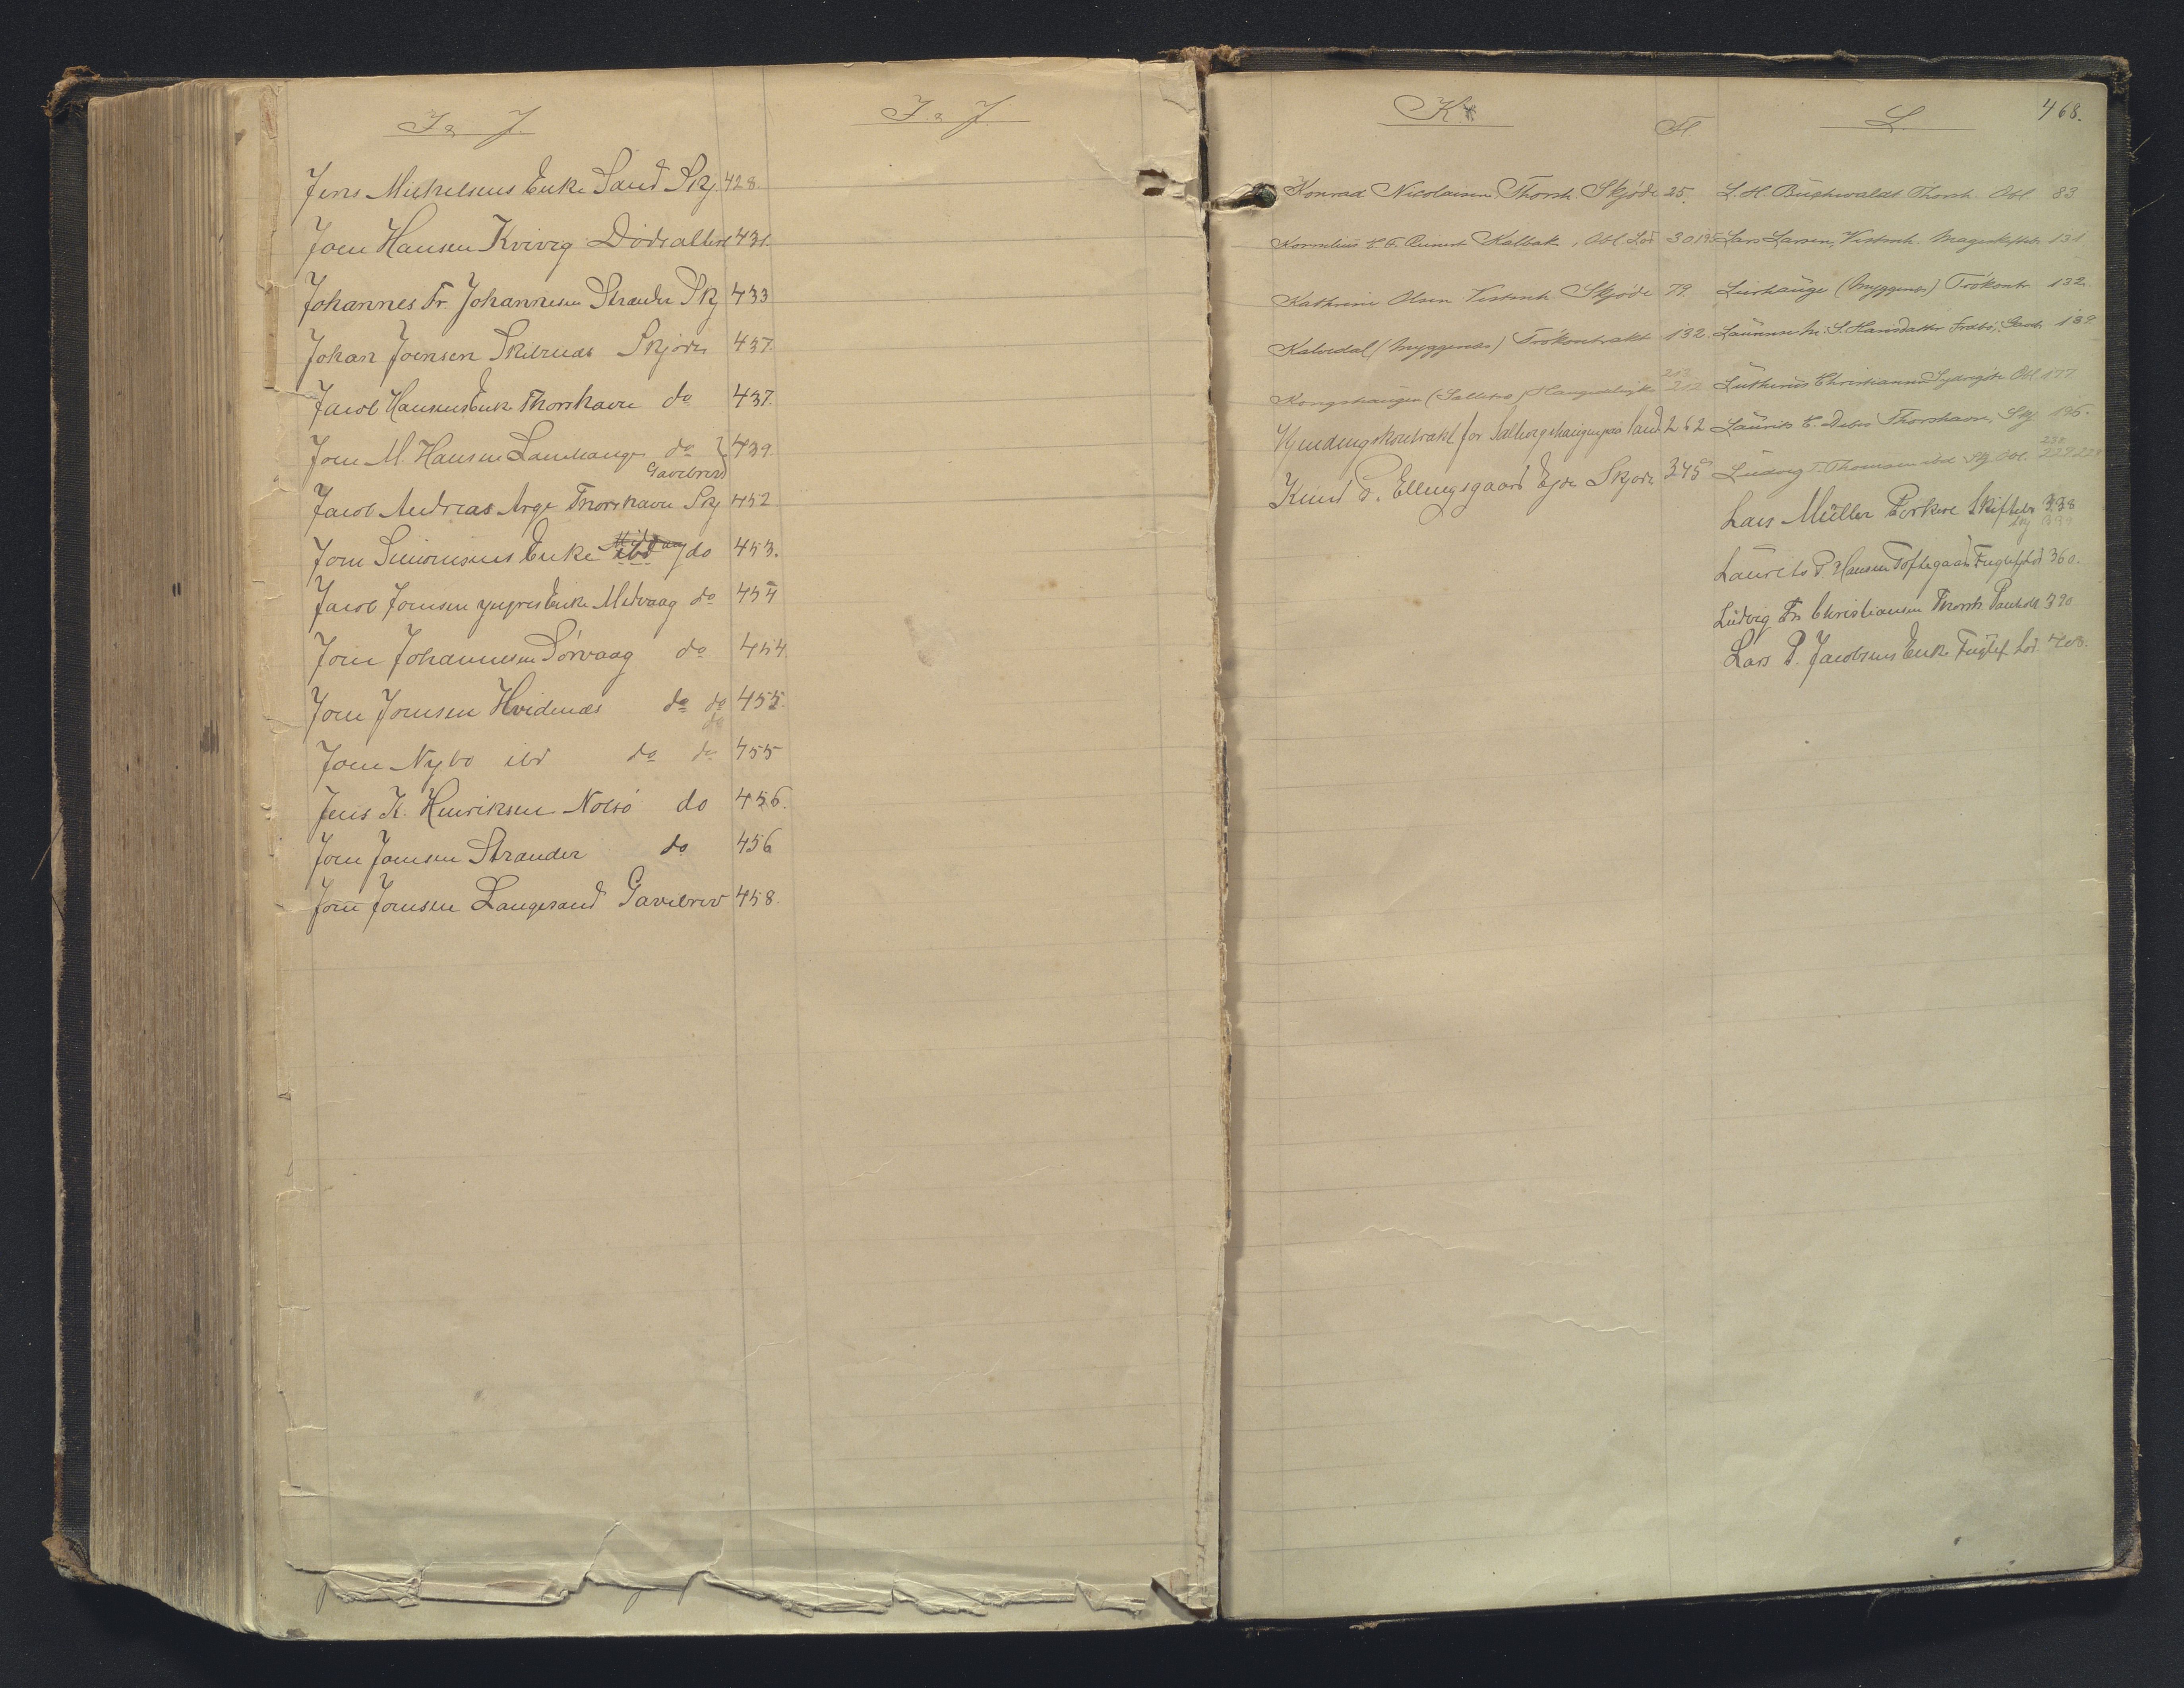 I & J.
Jens Michelsens Enke Sand Skj. 428.
Joen Hansen Kvivig Dødsattest 431.
Johannes Fr. Johannesen Strænder Skj 433
Johan Joensen Skibenæs Skjøde 437.
Jacob Hansens Enke Thorshavn do 437.
Joen M. Hansen Lamhauge do 439.
Gavebrev
Jacob Andreas Arge Thorshavn Skj 452
Joen Simonsens Enke ibd do 453.
Jacob Joensen yngres Enke Midvaag do 454
Joen Johannesen Sørvaag do 454.
Joen Joensen Hvidenæs do do 455.
do
Joen Nybo ibd do do 455
Jens K. Henriksen Nolsø do 456.
Joen Joensen Strænder do 456
Joen Joensen Langesand Gavebrev 458.
I & J.
K
Fl.
Konrad Nicolaisen Thorsh. Skjøde 25.
Kornelius Kalbak, Obl. 30 195
Kathrine Olsen Vestmh. Skjøde 79.
Kalvedal (Myggenæs) Trökontrakt 132.
213
Kongshaugen (Saltnes) 212
Kjendingskontrakt for land 262
Knud P. Ellingsgaard Ejde Skjøde 345
L.
468.
L. H. Buchwaldt Thorsh. Obl. 83
Lars Larsen, Vestmh. 131
Leirhauge (Myggenes) Trökontr. 132.
S. Hansdatter 139
Lutherus Christiansen Sydrugöte Obl. 177
Laurits C. Debes Thorshavn, Skj 195.
230
Ludvig T. Thomsen ibd Skj Obl. 229
Lars Müller Porkere Skiftebr 338
Skj 339
Laurits P. Hansen Toftegaard Fuglefj 360.
Ludvig Fr. Christiansen Thorsh Panteobl 390
Lars P. Jacobsens Enke Fuglef 408.